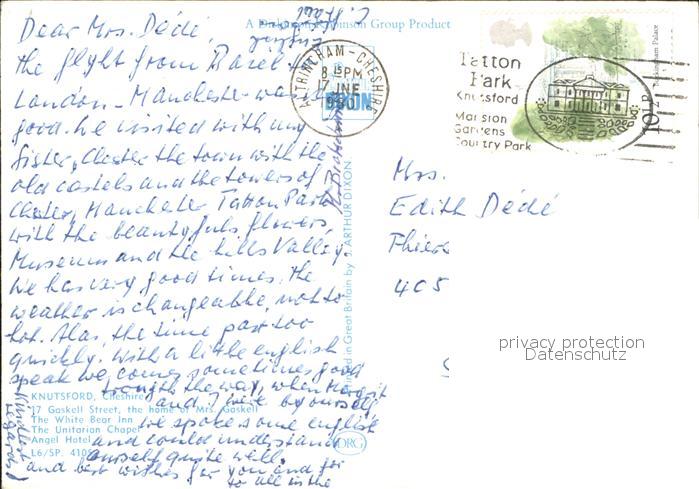 Dear Mrs. Dédé,
the flight from Basel
London - Manchester was
good. We visited with my
Sister, Chester the town with the
old castels and the towers of
Chester, Manchester Tatton Park
with the beautyfuls flowers,
Museum and the hills Valley.
We has very good times. The
weather is changeable, not to
hot. Alas, the time past too
quickly. With a little english
speak we comes sometimes good
trough the way, when Margrit
and I were by ourself
we spoke some english
and could understand
ourself quite well.
and best wishes for you and for
to all in the
A Dickinson Robinson Group Product
ALTRINCHAM - CHESHIRE
8 15 PM
17 JNE
1980
DIXON
Tatton
Park
Knutsford
Mansion
Gardens
Country Park
10½P
Buckingham Palace
Printed in Great Britain by J. ARTHUR DIXON
Mrs.
Edith Dédé
Thiers
405
privacy protection
Datenschutz
KNUTSFORD, Cheshire
17 Gaskell Street, the home of Mrs. Gaskell
The White Bear Inn
The Unitarian Chapel
Angel Hotel
L6/SP. 410
DRG